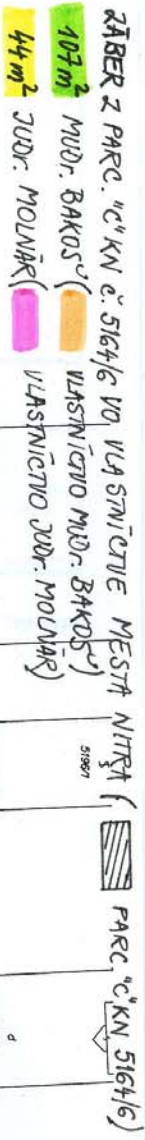 ZÁBER Z PARC. "C" KN č. 5164/6 VO VLASTNÍCTVE MESTA NITRA ( PARC. "C" KN 5164/6)
107 m² MUDr. BAKOŠ ( VLASTNÍCTVO MUDr. BAKOŠ)
44 m² JUDr. MOLNÁR ( VLASTNÍCTVO JUDr. MOLNÁR)
5196/1